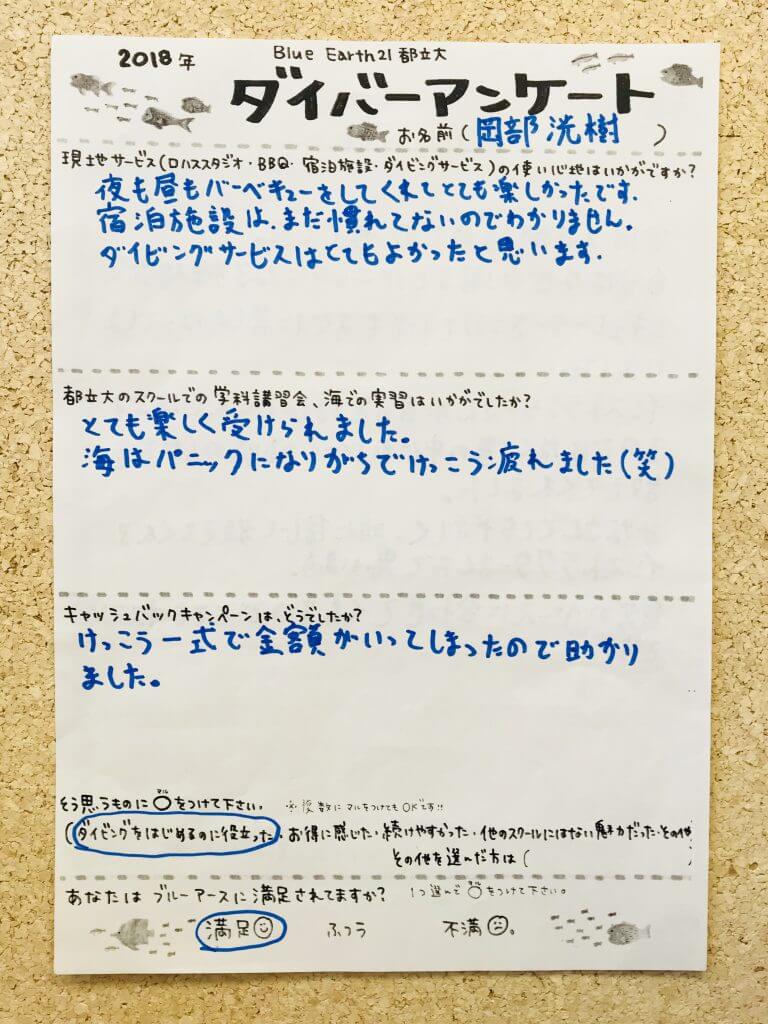 2018年
Blue Earth21 都立大
ダイバーアンケート
お名前 (岡部 洸樹 )
現地サービス(ロハススタジオ・BBQ・宿泊施設・ダイビングサービス)の使い心地はいかがですか?
夜も昼もバーベキューをしてくれてとても楽しかったです.
宿泊施設は、まだ慣れてないのでわかりません。
ダイビングサービスはとてもよかったと思います.
都立大のスクールでの学科講習会、海での実習はいかがでしたか?
とても楽しく受けられました。
海はパニックになりがちでけっこう疲れました(笑)
キャッシュバックキャンペーンは、どうでしたか?
けっこう一式で金額がいってしまったので助かり
ました。
そう思うものに○マルをつけて下さい。 ※複数にマルをつけてもOKです!!
(ダイビングをはじめるのに役立った・お得に感じた・続けやすかった・他のスクールにはない魅力だった・その他
その他を選んだ方は( )
あなたは ブルーアースに満足されてますか? 1つ選んで○をつけて下さい。
満足 ふつう 不満 。